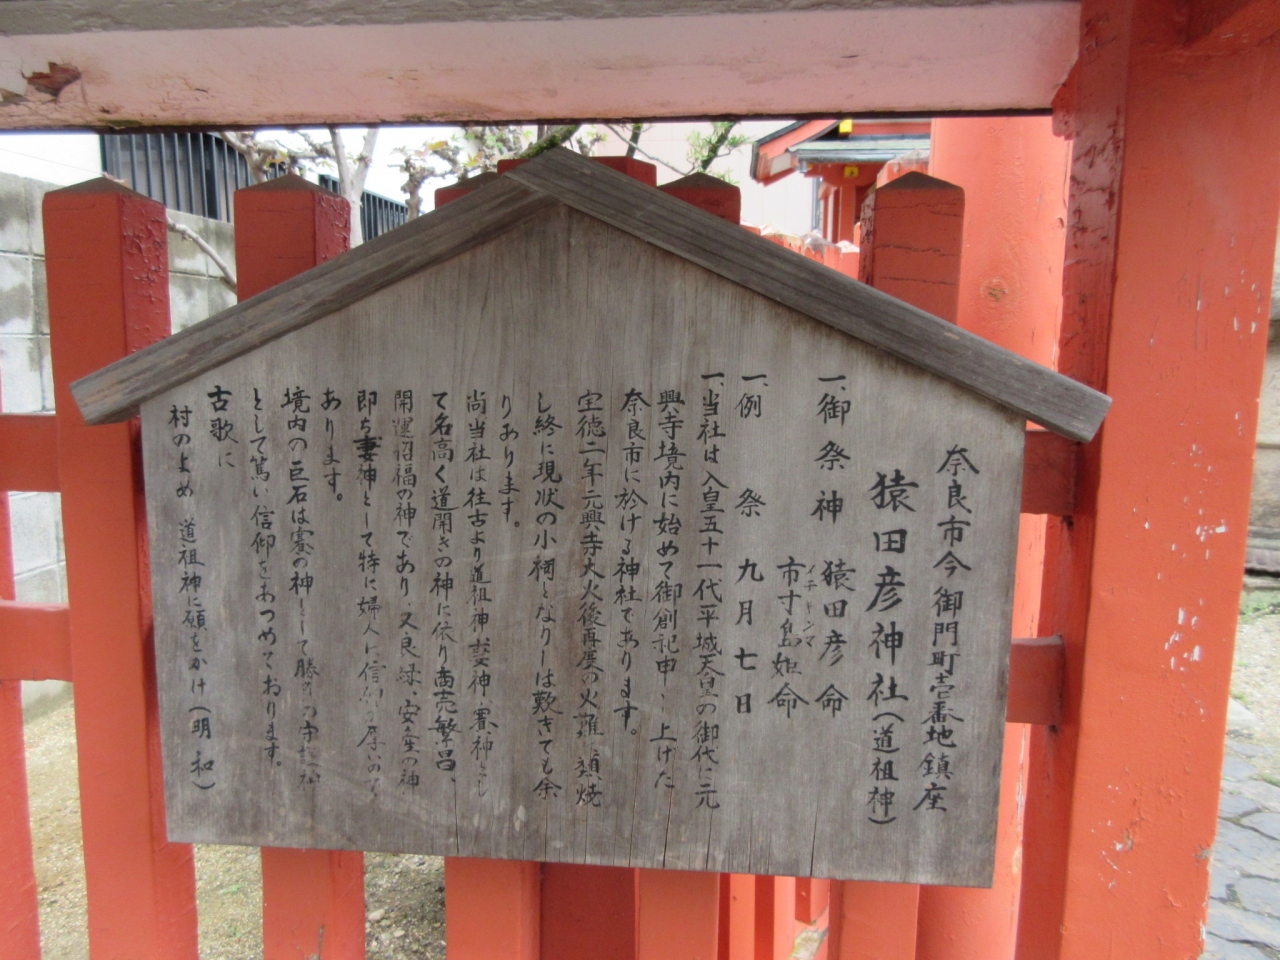 奈良市今御門町壱番地鎮座
猿田彦神社(道祖神)
一、御祭神 猿田彦命
イチキシマ
市寸島姫命
一、例祭 九月七日
一、当社は人皇五十一代平城天皇の御代に元
興寺境内に始めて御創祀申し上げた
奈良市に於ける神社であります。
宝徳二年元興寺大火後再度の火難に類焼
し終に現状の小祠となりしは歎きても余
りあります。
尚当社は往古より道祖神、妻神、賽神とし
て名高く道開きの神に依り商売繁昌、
開運招福の神であり、又良縁、安産の神
即ち妻神として特に婦人に信仰が厚いので
あります。
境内の巨石は賽の神として勝
として篤い信仰をあつめております。
古歌に
村のよめ 道祖神に願をかけ(明和)